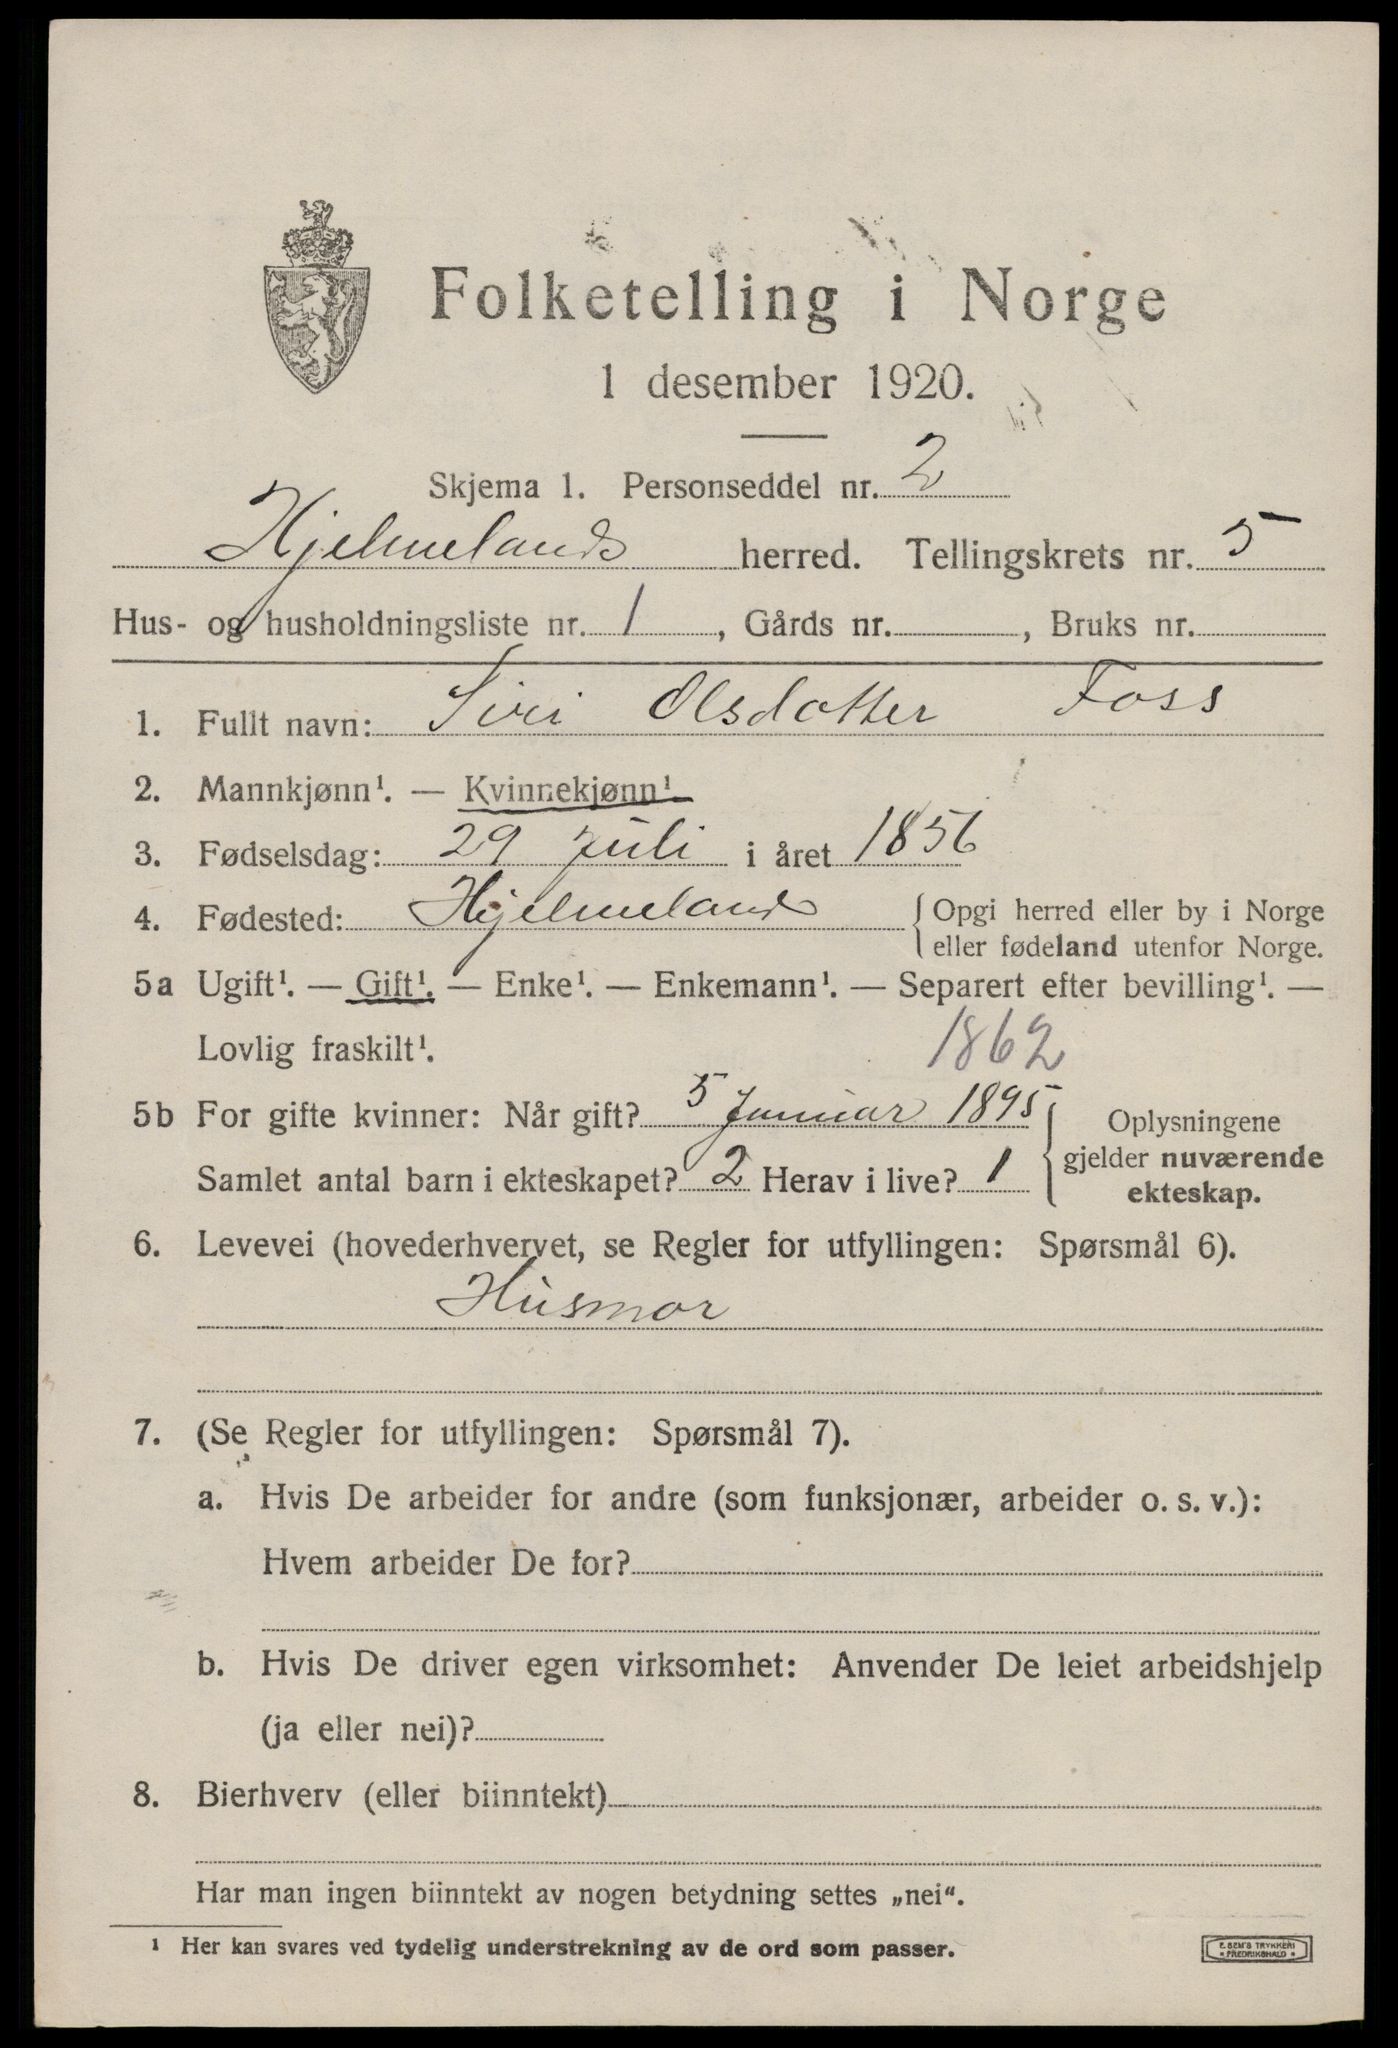 Folketelling i Norge
1 desember 1920.
Skjema 1. Personseddel nr. 2
Hjelmelands herred. Tellingskrets nr. 5
Hus- og husholdningsliste nr. 1, Gårds nr. , Bruks nr.
1. Fullt navn: Siri Olsdotter Foss
2. Mannkjønn¹. — Kvinnekjønn¹
3. Fødselsdag: 29 juli i året 1856
4. Fødested: Hjelmeland { Opgi herred eller by i Norge
eller fødeland utenfor Norge.
5a Ugift¹. — Gift¹. — Enke¹. — Enkemann¹. — Separert efter bevilling¹. —
Lovlig fraskilt¹. 1862
5b For gifte kvinner: Når gift? 5 Januar 1895
Samlet antal barn i ekteskapet? 2 Herav i live? 1
{ Oplysningene
gjelder nuværende
ekteskap.
6. Levevei (hovederhvervet, se Regler for utfyllingen: Spørsmål 6).
Husmor
7. (Se Regler for utfyllingen: Spørsmål 7).
a. Hvis De arbeider for andre (som funksjonær, arbeider o. s. v.):
Hvem arbeider De for?
b. Hvis De driver egen virksomhet: Anvender De leiet arbeidshjelp
(ja eller nei)?
8. Bierhverv (eller biinntekt)
Har man ingen biinntekt av nogen betydning settes „nei“.
¹ Her kan svares ved tydelig understrekning av de ord som passer.
E. SEM'S TRYKKERI
* FREDRIKSHALD *